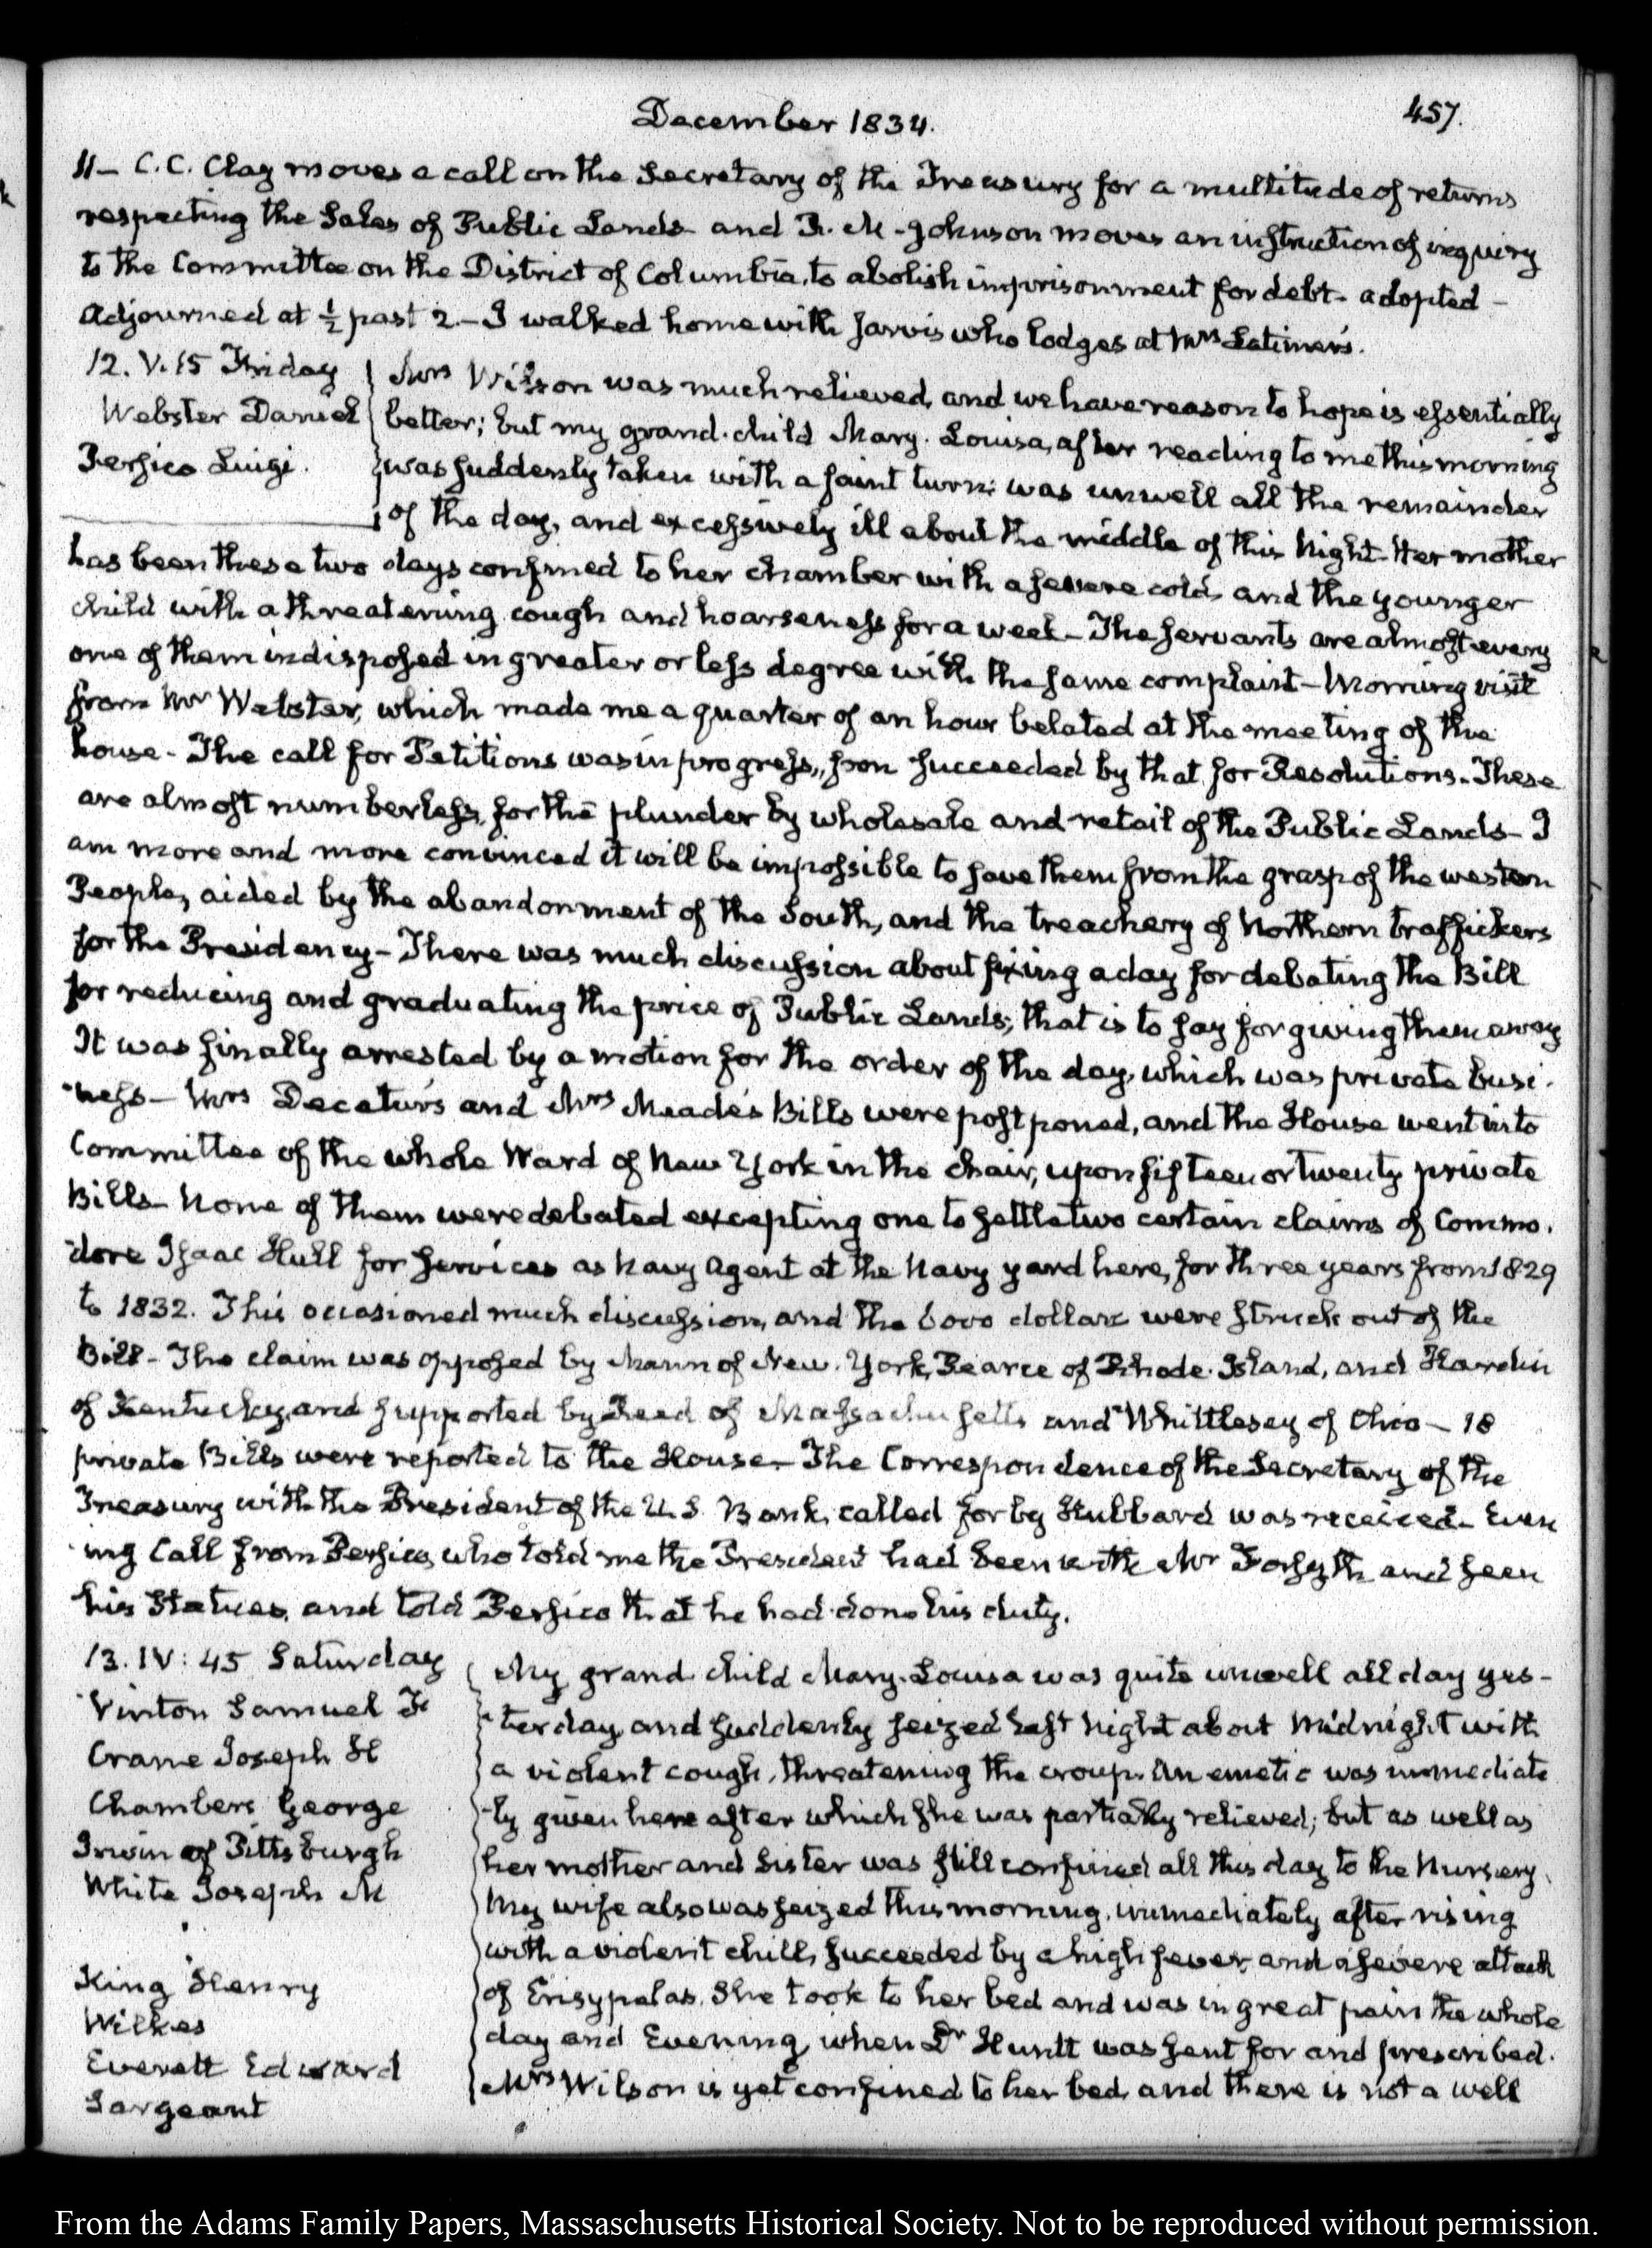 December 1834.
457.
11— C. C. Clay moves a call on the Secretary of the Treasury for a multitude of returns
respecting the Sales of Public Lands— and R. M. Johnson moves an instruction of inquiry
to the Committee on the District of Columbia, to abolish imprisonment for debt— adopted—
Adjourned at ½ past 2.— I walked home with Jarvis who lodges at Mrs Latimer's.
12. V. 15 Friday
Webster Daniel
Persico Luigi.
Mrs Wilson was much relieved, and we have reason to hope is essentially
better; but my grand-child Mary-Louisa, after reading to me this morning
was suddenly taken with a faint turn; was unwell all the remainder
of the day, and excessively ill about the middle of this Night— Her mother
has been these two days confined to her chamber with a severe cold, and the younger
child with a threatening cough and hoarseness for a week— The servants are almost every
one of them indisposed in greater or less degree with the same complaint— Morning visit
from Mr Webster, which made me a quarter of an hour belated at the meeting of the
house— The call for Petitions was in progress, soon succeeded by that for Resolutions— These
are almost numberless, for the plunder by wholesale and retail of the Public Lands— I
am more and more convinced it will be impossible to save them from the grasp of the western
People, aided by the abandonment of the South, and the treachery of Northern traffickers
for the Presidency— There was much discussion about fixing a day for debating the Bill
for reducing and graduating the price of Public Lands; that is to say for giving them away
It was finally arrested by a motion for the order of the day, which was private busi-
-ness— Mrs Decatur's and Mrs Meade's Bills were postponed, and the House went into
Committee of the whole Ward of New York in the chair, upon fifteen or twenty private
Bills— None of them were debated excepting one to settle two certain claims of Commo-
-dore Isaac Hull for services as Navy Agent at the Navy yard here, for three years from 1829
to 1832. This occasioned much discussion, and the 6000 dollars were struck out of the
Bill— The claim was opposed by Mann of New-York, Pearce of Rhode-Island, and Hardin
of Kentucky, and supported by Reed of Massachusetts and Whittlesey of Ohio— 18
private Bills were reported to the House— The Correspondence of the Secretary of the
Treasury with the President of the U. S. Bank, called for by Hubbard was received— Even
-ing Call from Persico, who told me the President had been with Mr Forsyth and seen
his Statues, and told Persico that he had done his duty.
13. IV: 45 Saturday
Vinton Samuel F
Crane Joseph H
Chambers George
Irwin of Pittsburgh
White Joseph M
King Henry
Wilkes
Everett Edward
Sargeant
My grand-child Mary-Louisa was quite unwell all day yes-
-terday, and suddenly seized last Night about Midnight with
a violent cough, threatening the croup. An emetic was immediate
-ly given here after which she was partially relieved; but as well as
her mother and Sister was still confined all this day to the Nursery.
My wife also was seized this morning, immediately after rising
with a violent chill, succeeded by a high fever, and a severe attack
of Erisypelas. She took to her bed and was in great pain the whole
day and Evening, when Dr Huntt was sent for and prescribed.
Mrs Wilson is yet confined to her bed, and there is not a well
From the Adams Family Papers, Massaschusetts Historical Society. Not to be reproduced without permission.